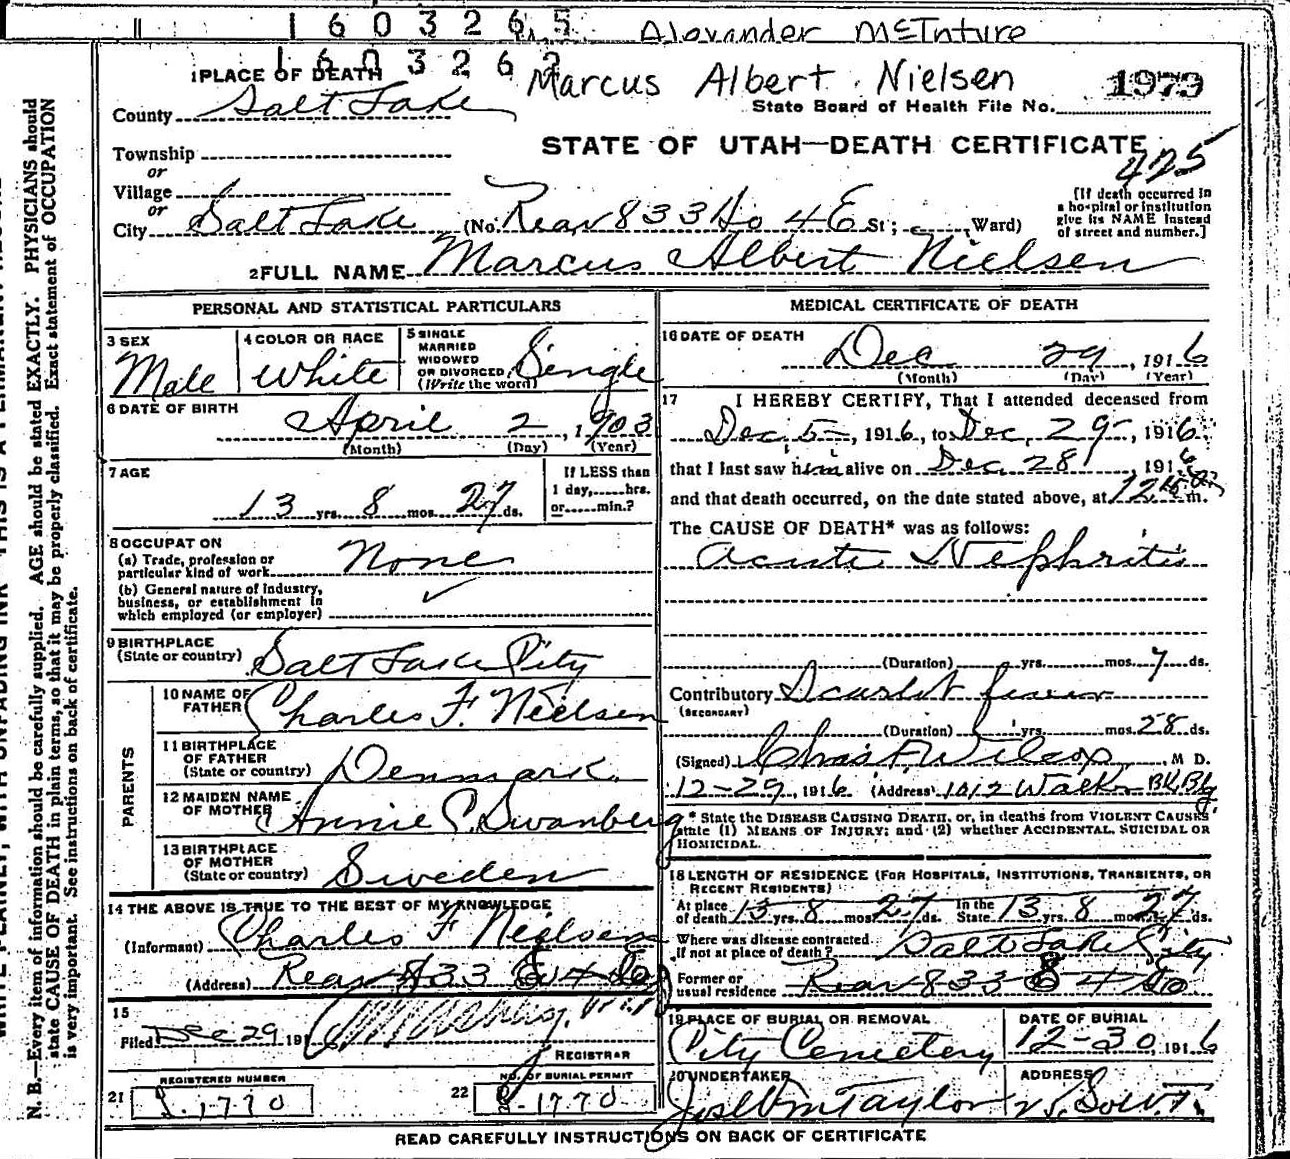 1 6 0 3 2 6 5 Alexander McInture
1 6 0 3 2 6 2 Marcus Albert Nielsen 1979
1 PLACE OF DEATH
County Salt Lake
State Board of Health File No.
STATE OF UTAH—DEATH CERTIFICATE
425
Township
or
Village
or
City Salt Lake (No. Rear 833 So 4 E St; Ward)
[If death occurred in
a hospital or institution
give its NAME instead
of street and number.]
2 FULL NAME Marcus Albert Nielsen
PERSONAL AND STATISTICAL PARTICULARS
3 SEX
Male
4 COLOR OR RACE
White
5 SINGLE
MARRIED
WIDOWED
OR DIVORCED
(Write the word)
Single
6 DATE OF BIRTH
April 2, 1903
(Month) (Day) (Year)
7 AGE
13 yrs. 8 mos. 27 ds.
If LESS than
1 day,......hrs.
or......min.?
8 OCCUPATION
(a) Trade, profession or
particular kind of work None
(b) General nature of industry,
business, or establishment in
which employed (or employer)
✓
9 BIRTHPLACE
(State or country) Salt Lake City
PARENTS
10 NAME OF
FATHER Charles F. Nielsen
11 BIRTHPLACE
OF FATHER
(State or country) Denmark.
12 MAIDEN NAME
OF MOTHER Annie C. Swanberg
13 BIRTHPLACE
OF MOTHER
(State or country) Sweden
14 THE ABOVE IS TRUE TO THE BEST OF MY KNOWLEDGE
(Informant) Charles F Nielsen
(Address) Rear 833 4 So
15
Filed Dec 29 191
REGISTRAR
REGISTERED NUMBER
21 1770
NO. OF BURIAL PERMIT
22 1770
MEDICAL CERTIFICATE OF DEATH
16 DATE OF DEATH
Dec 29, 1916
(Month) (Day) (Year)
17 I HEREBY CERTIFY, That I attended deceased from
Dec. 5, 1916, to Dec. 29, 1916.
that I last saw him alive on Dec. 28, 1916,
and that death occurred, on the date stated above, at 12 m.
The CAUSE OF DEATH* was as follows:
Acute Nephritis
(Duration) yrs. mos. 7 ds.
Contributory Scarlet fever
(SECONDARY)
(Duration) yrs. mos. 28 ds.
(Signed) Chas F. Wilcox, M D.
12-29, 1916 (Address) 1012 Walker Bk. Bg.
* State the DISEASE CAUSING DEATH, or, in deaths from VIOLENT CAUSES
state (1) MEANS OF INJURY; and (2) whether ACCIDENTAL, SUICIDAL OR
HOMICIDAL.
18 LENGTH OF RESIDENCE (FOR HOSPITALS, INSTITUTIONS, TRANSIENTS, OR
RECENT RESIDENTS)
At place
of death 13 yrs. 8 mos. 27 ds. In the
State 13 yrs. 8 mos. 27 ds.
Where was disease contracted
if not at place of death? Salt Lake City
Former or
usual residence Rear 833 4 So
19 PLACE OF BURIAL OR REMOVAL
City Cemetery
DATE OF BURIAL
12-30, 1916
20 UNDERTAKER
Jos Wm Taylor
ADDRESS
READ CAREFULLY INSTRUCTIONS ON BACK OF CERTIFICATE
N. B.—Every item of information should be carefully supplied. AGE should be stated EXACTLY. PHYSICIANS should
state CAUSE OF DEATH in plain terms, so that it may be properly classified. Exact statement of OCCUPATION
is very important. See instructions on back of certificate.